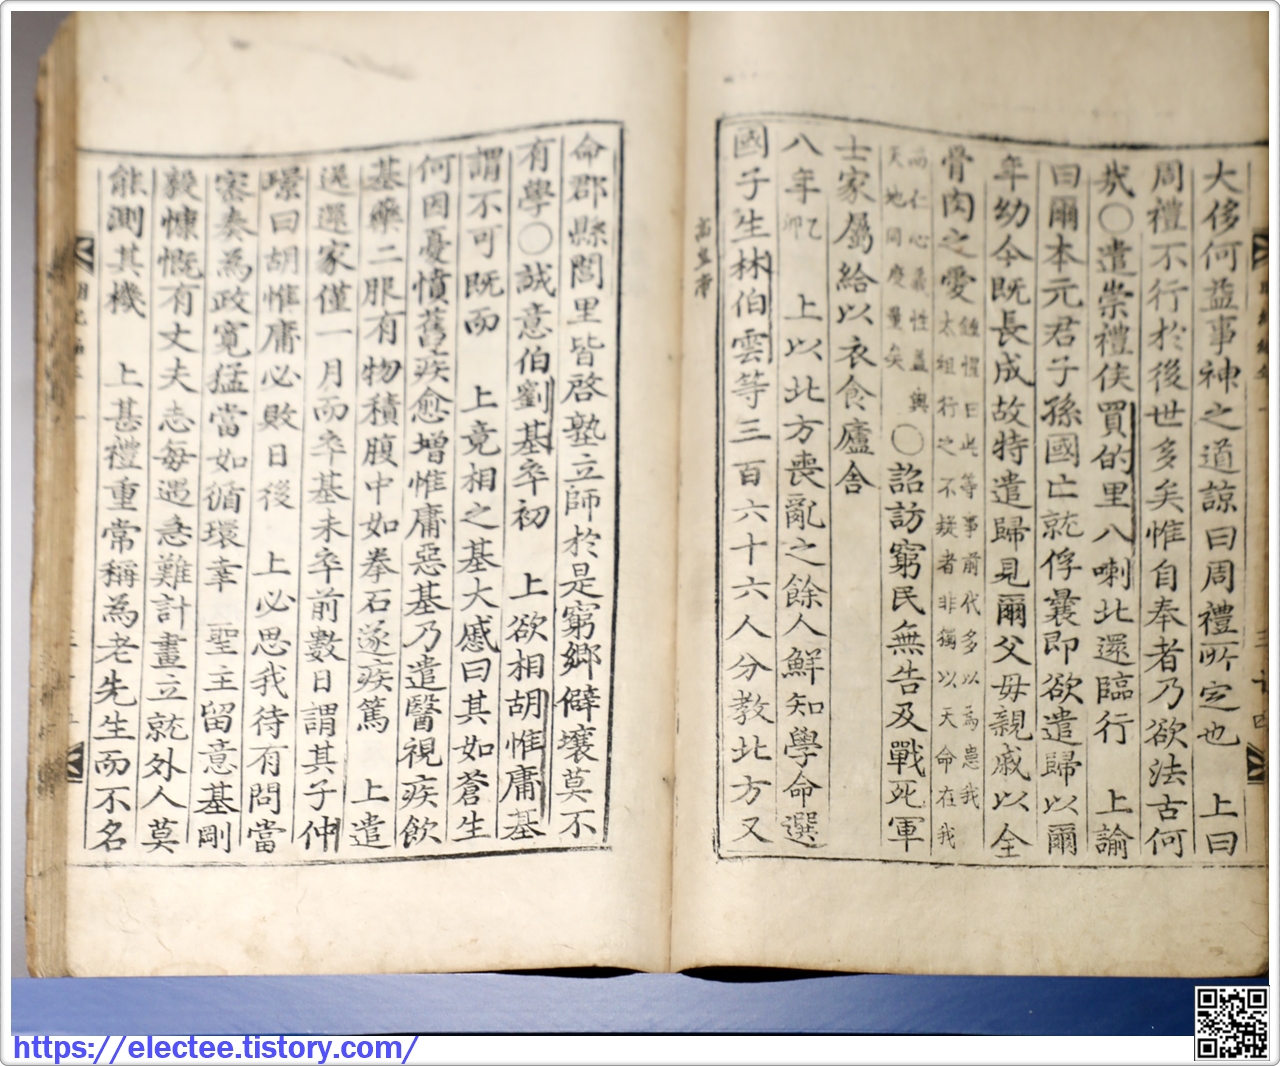 大侈何益事神之道諒曰周禮所定也 上曰
周禮不行於後世多矣惟自奉者乃欲法古何
哉○遣崇禮侯買的里八喇北還臨行 上諭
曰爾本元君子孫國亡就俘曩即欲遣歸以爾
年幼今既長成故特遣歸見爾父母親戚以全
骨肉之愛
惟曰此等事前代多以為患我
太祖行之不疑者非獨以天命在我
仁心義性蓋與
天地同度量矣
○詔訪窮民無告及戰死軍
士家屬給以衣食廬舍
八年乙卯 上以北方喪亂之餘人鮮知學命選
國子生林伯雲等三百六十六人分教北方又
命郡縣閭里皆啓塾立師於是窮鄉僻壤莫不
有學○誠意伯劉基卒初 上欲相胡惟庸基
謂不可既而 上竟相之基大慼曰其如蒼生
何因憂憤舊疾愈增惟庸惡基乃遣醫視疾飲
基藥二服有物積腹中如拳石遂疾篤 上遣
還家僅一月而卒基未卒前數日謂其子仲
璟曰胡惟庸必敗日後 上必思我待有問當
密奏為政寬猛當如循環幸 聖主留意基剛
毅慷慨有丈夫志每遇急難計畫立就外人莫
能測其機 上甚禮重常稱為老先生而不名
https://electee.tistory.com/